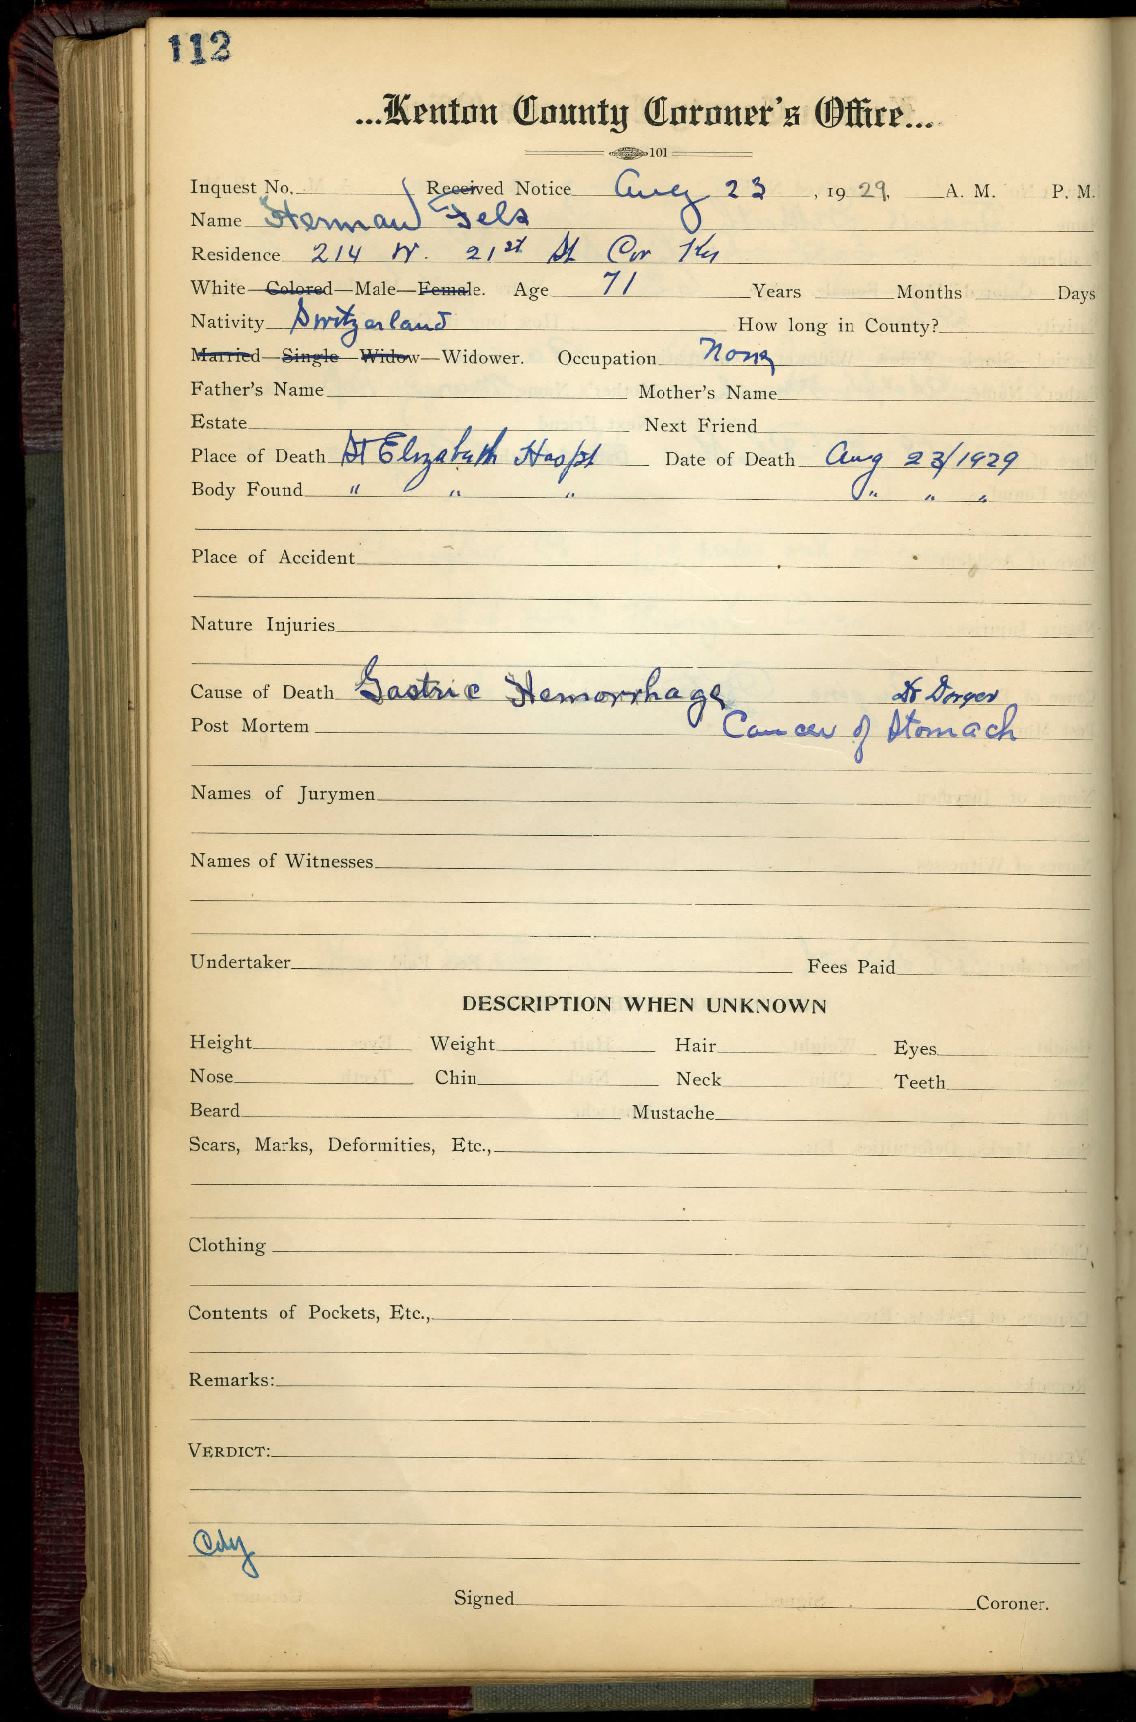 112
...Kenton County Coroner's Office...
101
Inquest No. Received Notice Aug 23, 1929, A. M. P. M.
Name Herman Fels
Residence 214 W. 21st St Cov Ky
White—Colored—Male—Female. Age 71 Years Months Days
Nativity Switzerland How long in County?
Married—Single—Widow—Widower. Occupation None
Father's Name Mother's Name
Estate Next Friend
Place of Death St Elizabeth Hospt Date of Death Aug 23/1929
Body Found " " " " " "
Place of Accident
Nature Injuries
Cause of Death Gastric Hemorrhage Dr Dorger
Post Mortem Cancer of Stomach
Names of Jurymen
Names of Witnesses
Undertaker Fees Paid
DESCRIPTION WHEN UNKNOWN
Height Weight Hair Eyes
Nose Chin Neck Teeth
Beard Mustache
Scars, Marks, Deformities, Etc.,
Clothing
Contents of Pockets, Etc.,
Remarks:
VERDICT:
Signed Coroner.